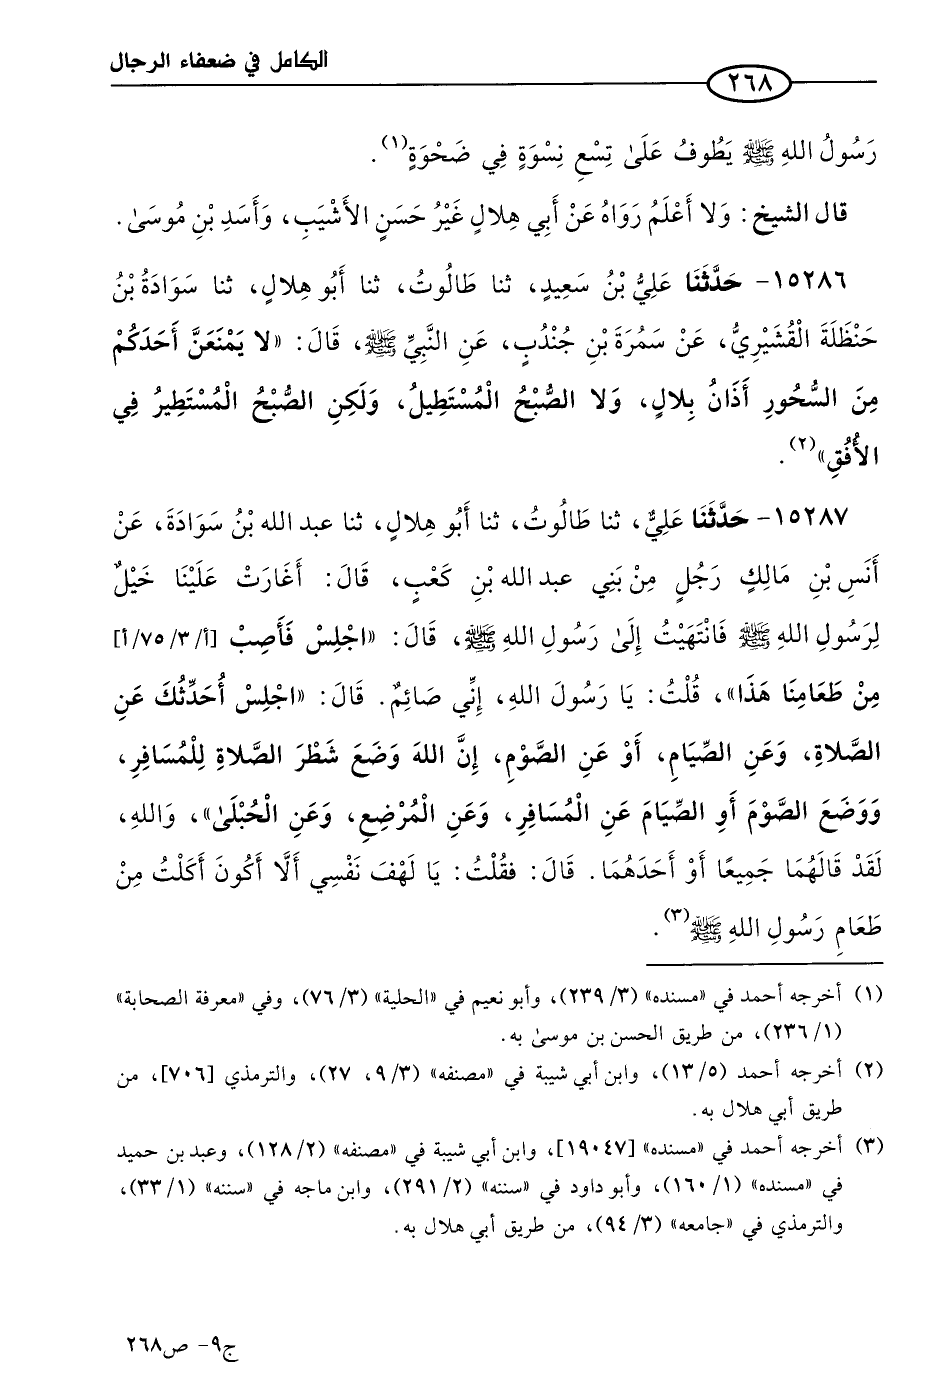 الكامل في ضعفاء الرجال
٢٦٨
رَسُولُ اللهِ ﷺ يَطُوفُ عَلَىٰ تِسْعِ نِسْوَةٍ فِي ضَحْوَةٍ(١).
قال الشيخ: وَلا أَعْلَمُ رَوَاهُ عَنْ أَبِي هِلالٍ غَيْرُ حَسَنٍ الأَشْيَبِ، وَأَسَدِ بْنِ مُوسَىٰ.
١٥٢٨٦- حَدَّثَنَا عَلِيُّ بْنُ سَعِيدٍ، ثنا طَالُوتُ، ثنا أَبُو هِلالٍ، ثنا سَوَادَةُ بْنُ
حَنْظَلَةَ الْقُشَيْرِيُّ، عَنْ سَمُرَةَ بْنِ جُنْدُبٍ، عَنِ النَّبِيِّ ﷺ، قَالَ: «لا يَمْنَعَنَّ أَحَدَكُمْ
مِنَ السُّحُورِ أَذَانُ بِلالٍ، وَلا الصُّبْحُ الْمُسْتَطِيلُ، وَلَكِنِ الصُّبْحُ الْمُسْتَطِيرُ فِي
الأُفُقِ»(٢).
١٥٢٨٧- حَدَّثَنَا عَلِيٌّ، ثنا طَالُوتُ، ثنا أَبُو هِلالٍ، ثنا عبد الله بْنُ سَوَادَةَ، عَنْ
أَنَسِ بْنِ مَالِكٍ رَجُلٍ مِنْ بَنِي عبد الله بْنِ كَعْبٍ، قَالَ: أَغَارَتْ عَلَيْنَا خَيْلٌ
لِرَسُولِ اللهِ ﷺ فَانْتَهَيْتُ إِلَىٰ رَسُولِ اللهِ ﷺ، قَالَ: «اجْلِسْ فَأَصِبْ [أ/٣/٧٥/أ]
مِنْ طَعَامِنَا هَذَا»، قُلْتُ: يَا رَسُولَ اللهِ، إِنِّي صَائِمٌ. قَالَ: «اجْلِسْ أُحَدِّثُكَ عَنِ
الصَّلاةِ، وَعَنِ الصِّيَامِ، أَوْ عَنِ الصَّوْمِ، إِنَّ اللهَ وَضَعَ شَطْرَ الصَّلاةِ لِلْمُسَافِرِ،
وَوَضَعَ الصَّوْمَ أَوِ الصِّيَامَ عَنِ الْمُسَافِرِ، وَعَنِ الْمُرْضِعِ، وَعَنِ الْحُبْلَىٰ»، وَاللهِ،
لَقَدْ قَالَهُمَا جَمِيعًا أَوْ أَحَدَهُمَا. قَالَ: فقُلْتُ: يَا لَهْفَ نَفْسِي أَلَّا أَكُونَ أَكَلْتُ مِنْ
طَعَامِ رَسُولِ اللهِ ﷺ(٣).
(١) أخرجه أحمد في «مسنده» (٣/ ٢٣٩)، وأبو نعيم في «الحلية» (٣/ ٧٦)، وفي «معرفة الصحابة»
(١/ ٢٣٦)، من طريق الحسن بن موسىٰ به.
(٢) أخرجه أحمد (٥/ ١٣)، وابن أبي شيبة في «مصنفه» (٣/ ٩، ٢٧)، والترمذي [٧٠٦]، من
طريق أبي هلال به.
(٣) أخرجه أحمد في «مسنده» [١٩٠٤٧]، وابن أبي شيبة في «مصنفه» (٢/ ١٢٨)، وعبد بن حميد
في «مسنده» (١/ ١٦٠)، وأبو داود في «سننه» (٢/ ٢٩١)، وابن ماجه في «سننه» (١/ ٣٣)،
والترمذي في «جامعه» (٣/ ٩٤)، من طريق أبي هلال به.
ج٩- ص٢٦٨